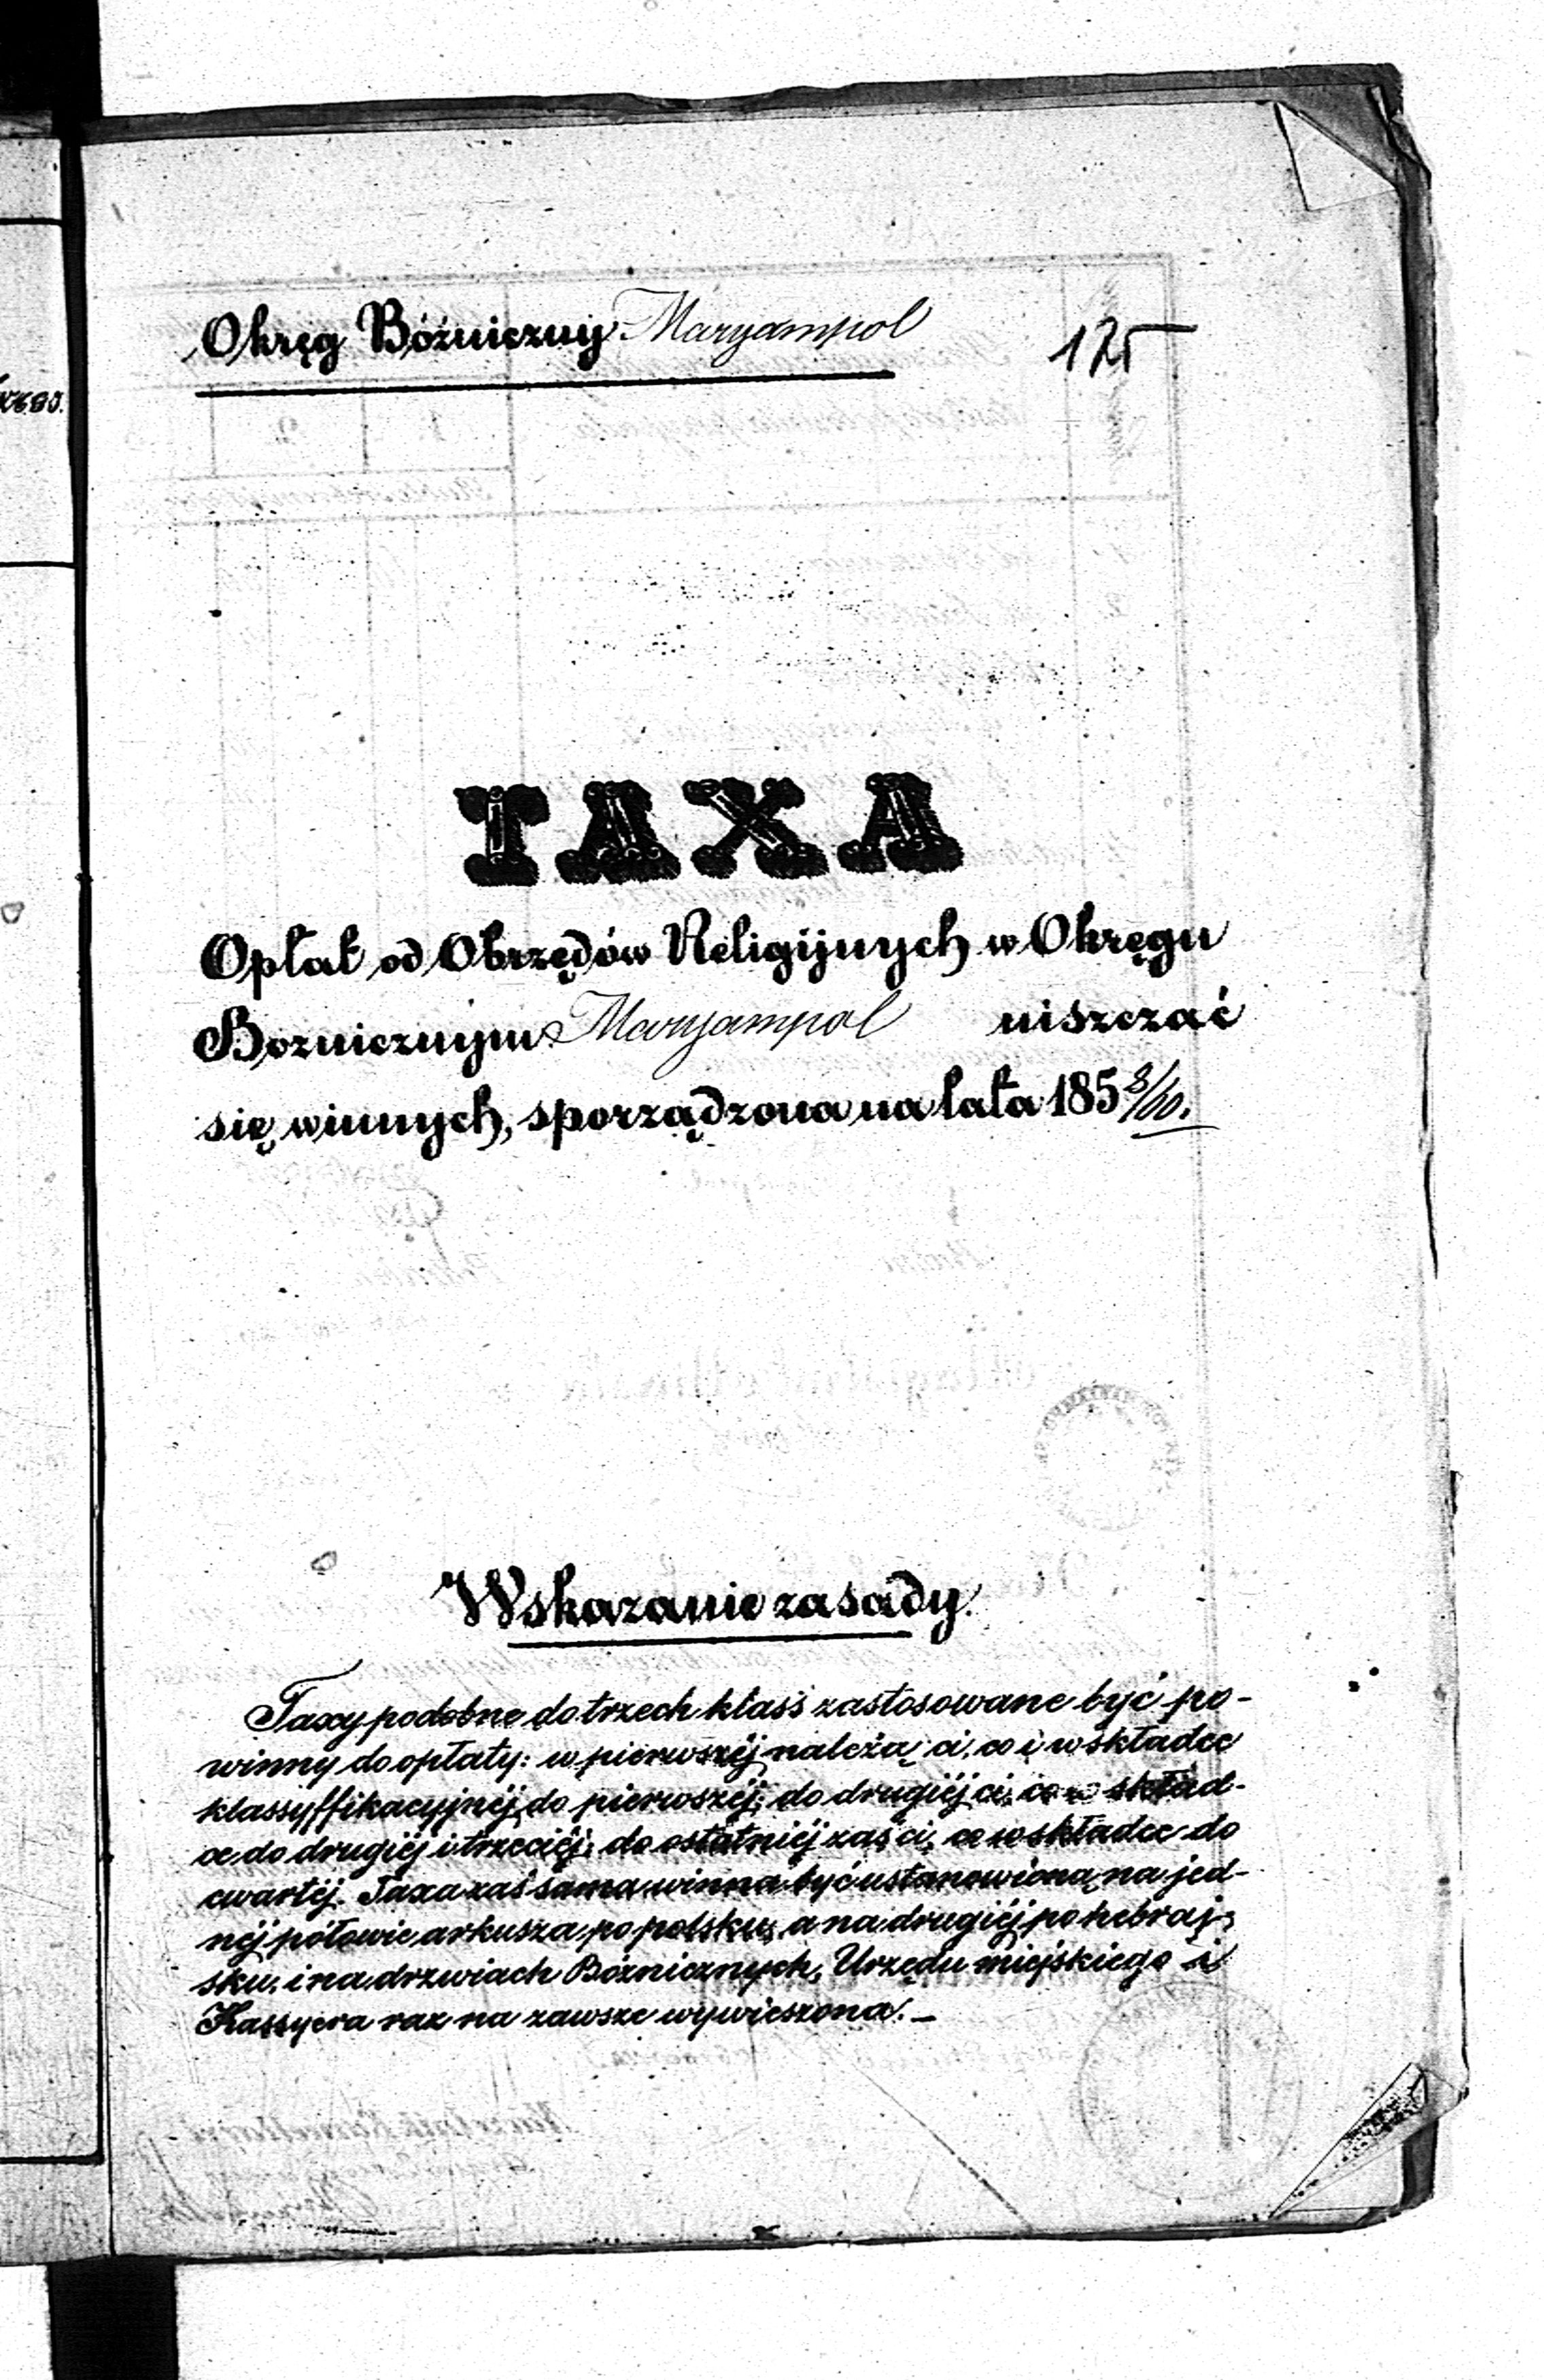 Okręg Bóżniczny Maryampol
125
TAXA
Opłat od Obrzędów Religijnych w Okręgu
Boznicznym Maryampol uiszczać
się winnych, sporządzona na lata 1858/60.
Wskazanie zasady.
Taxy podobne do trzech klass zastosowane być po-
winny do opłaty: w pierwszéj należą ci, co i w składce
klassyffikacyjnéj do pierwszéj; do drugiéj ci, co w skład-
ce do drugiéj i trzeciéj; do ostatniéj zaś ci, co w składce do
cwartéj. Taxa zaś sama winna być ustanowioną na jed-
néj połowie arkusza po polsku, a na drugiéj po hebraj-
sku, i na drzwiach Bóżnicznych, Urzędu miejskiego i
Kassyera raz na zawsze wywieszona. —